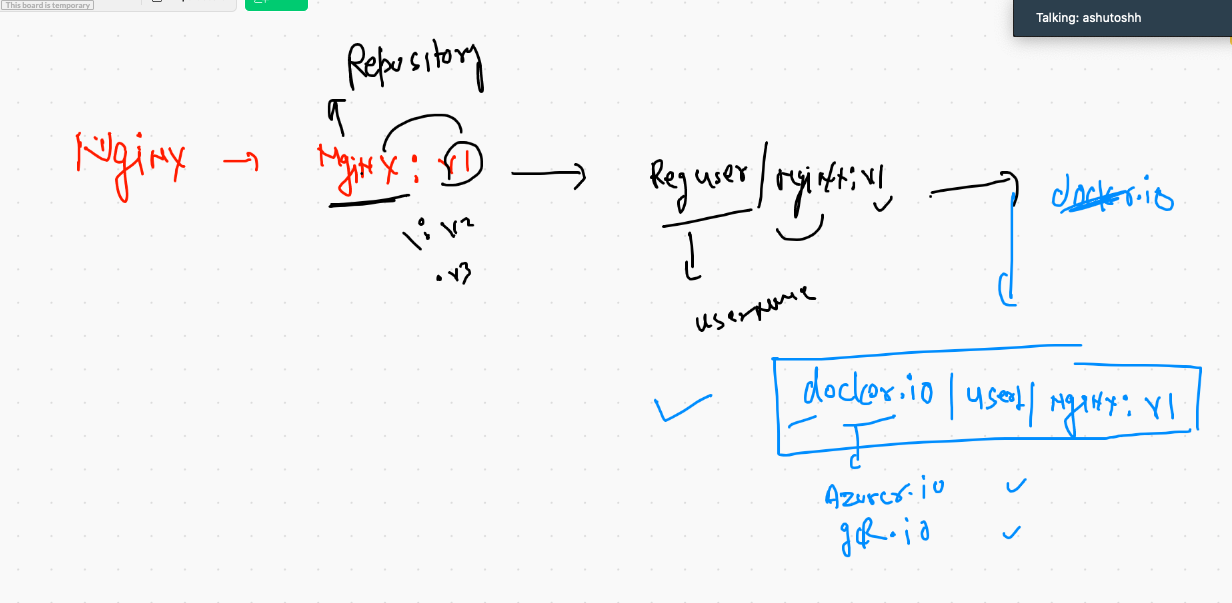 This board is temporary
Talking: ashutoshh
Repository
Nginx → Nginx : v1 → Reguser/nginx:v1 → docker.io
: v2
. v3
username
docker.io | user | nginx: v1
Azurcr.io
gcR.io